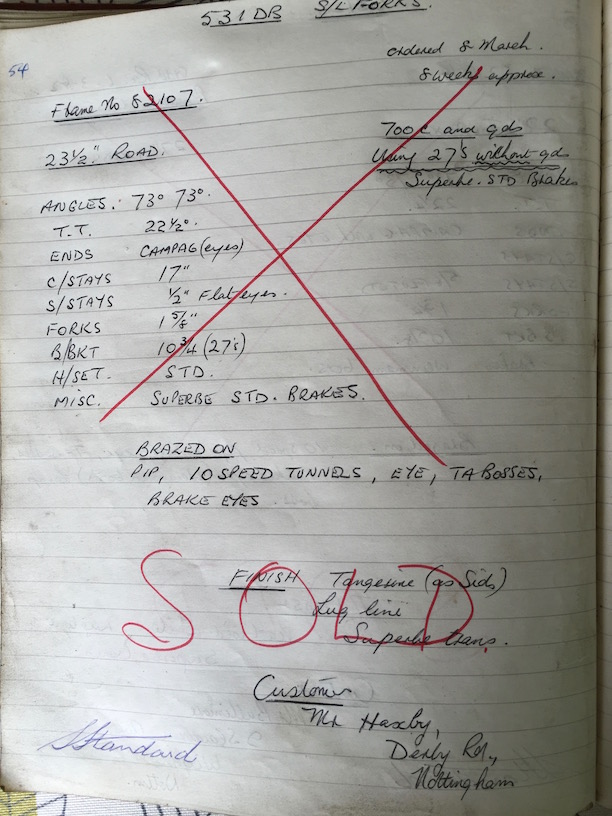 531DB S/L FORKS.
54
ordered 8 March.
8 weeks approx.
Frame No 82107.
700c and gds
23½" ROAD.
Using 27's without gds
Superbe. STD Brakes
ANGLES. 73° 73°.
T.T. 22½".
ENDS CAMPAG (eyes)
C/STAYS 17"
S/STAYS ½" Flat eyes.
FORKS 1 5/8"
B/BKT 10 3/4 (27's)
H/SET. STD.
MISC. SUPERBE STD. BRAKES.
BRAZED ON
PIP, 10 SPEED TUNNELS, EYE, TA BOSSES,
BRAKE EYES
SOLD
FINISH Tangerine (as Sids)
Lug line
Superbe trans.
Customer
Mr Haxby,
Derby Rd.,
Nottingham
Standard